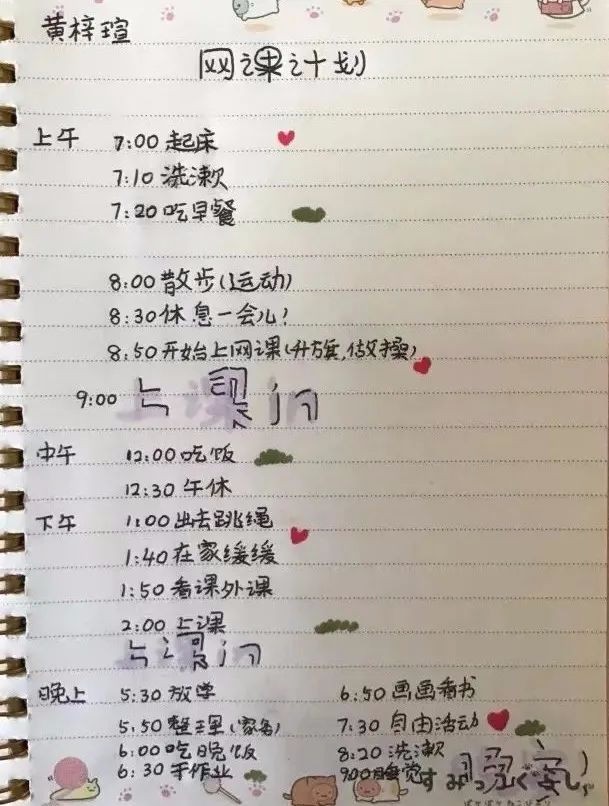 黄梓瑄
网课计划
上午 7:00 起床
7:10 洗漱
7:20 吃早餐
8:00 散步(运动)
8:30 休息一会儿!
8:50 开始上网课(升旗,做操)
9:00 上课ing
中午 12:00 吃饭
12:30 午休
下午 1:00 出去跳绳
1:40 在家缓缓
1:50 看课外课
2:00 上课
上课ing
晚上 5:30 放学
5:50 整理(家务)
6:00 吃晚饭
6:30 干作业
6:50 画画看书
7:30 自由活动
8:20 洗漱
9:00 睡觉
すみっこぐらし